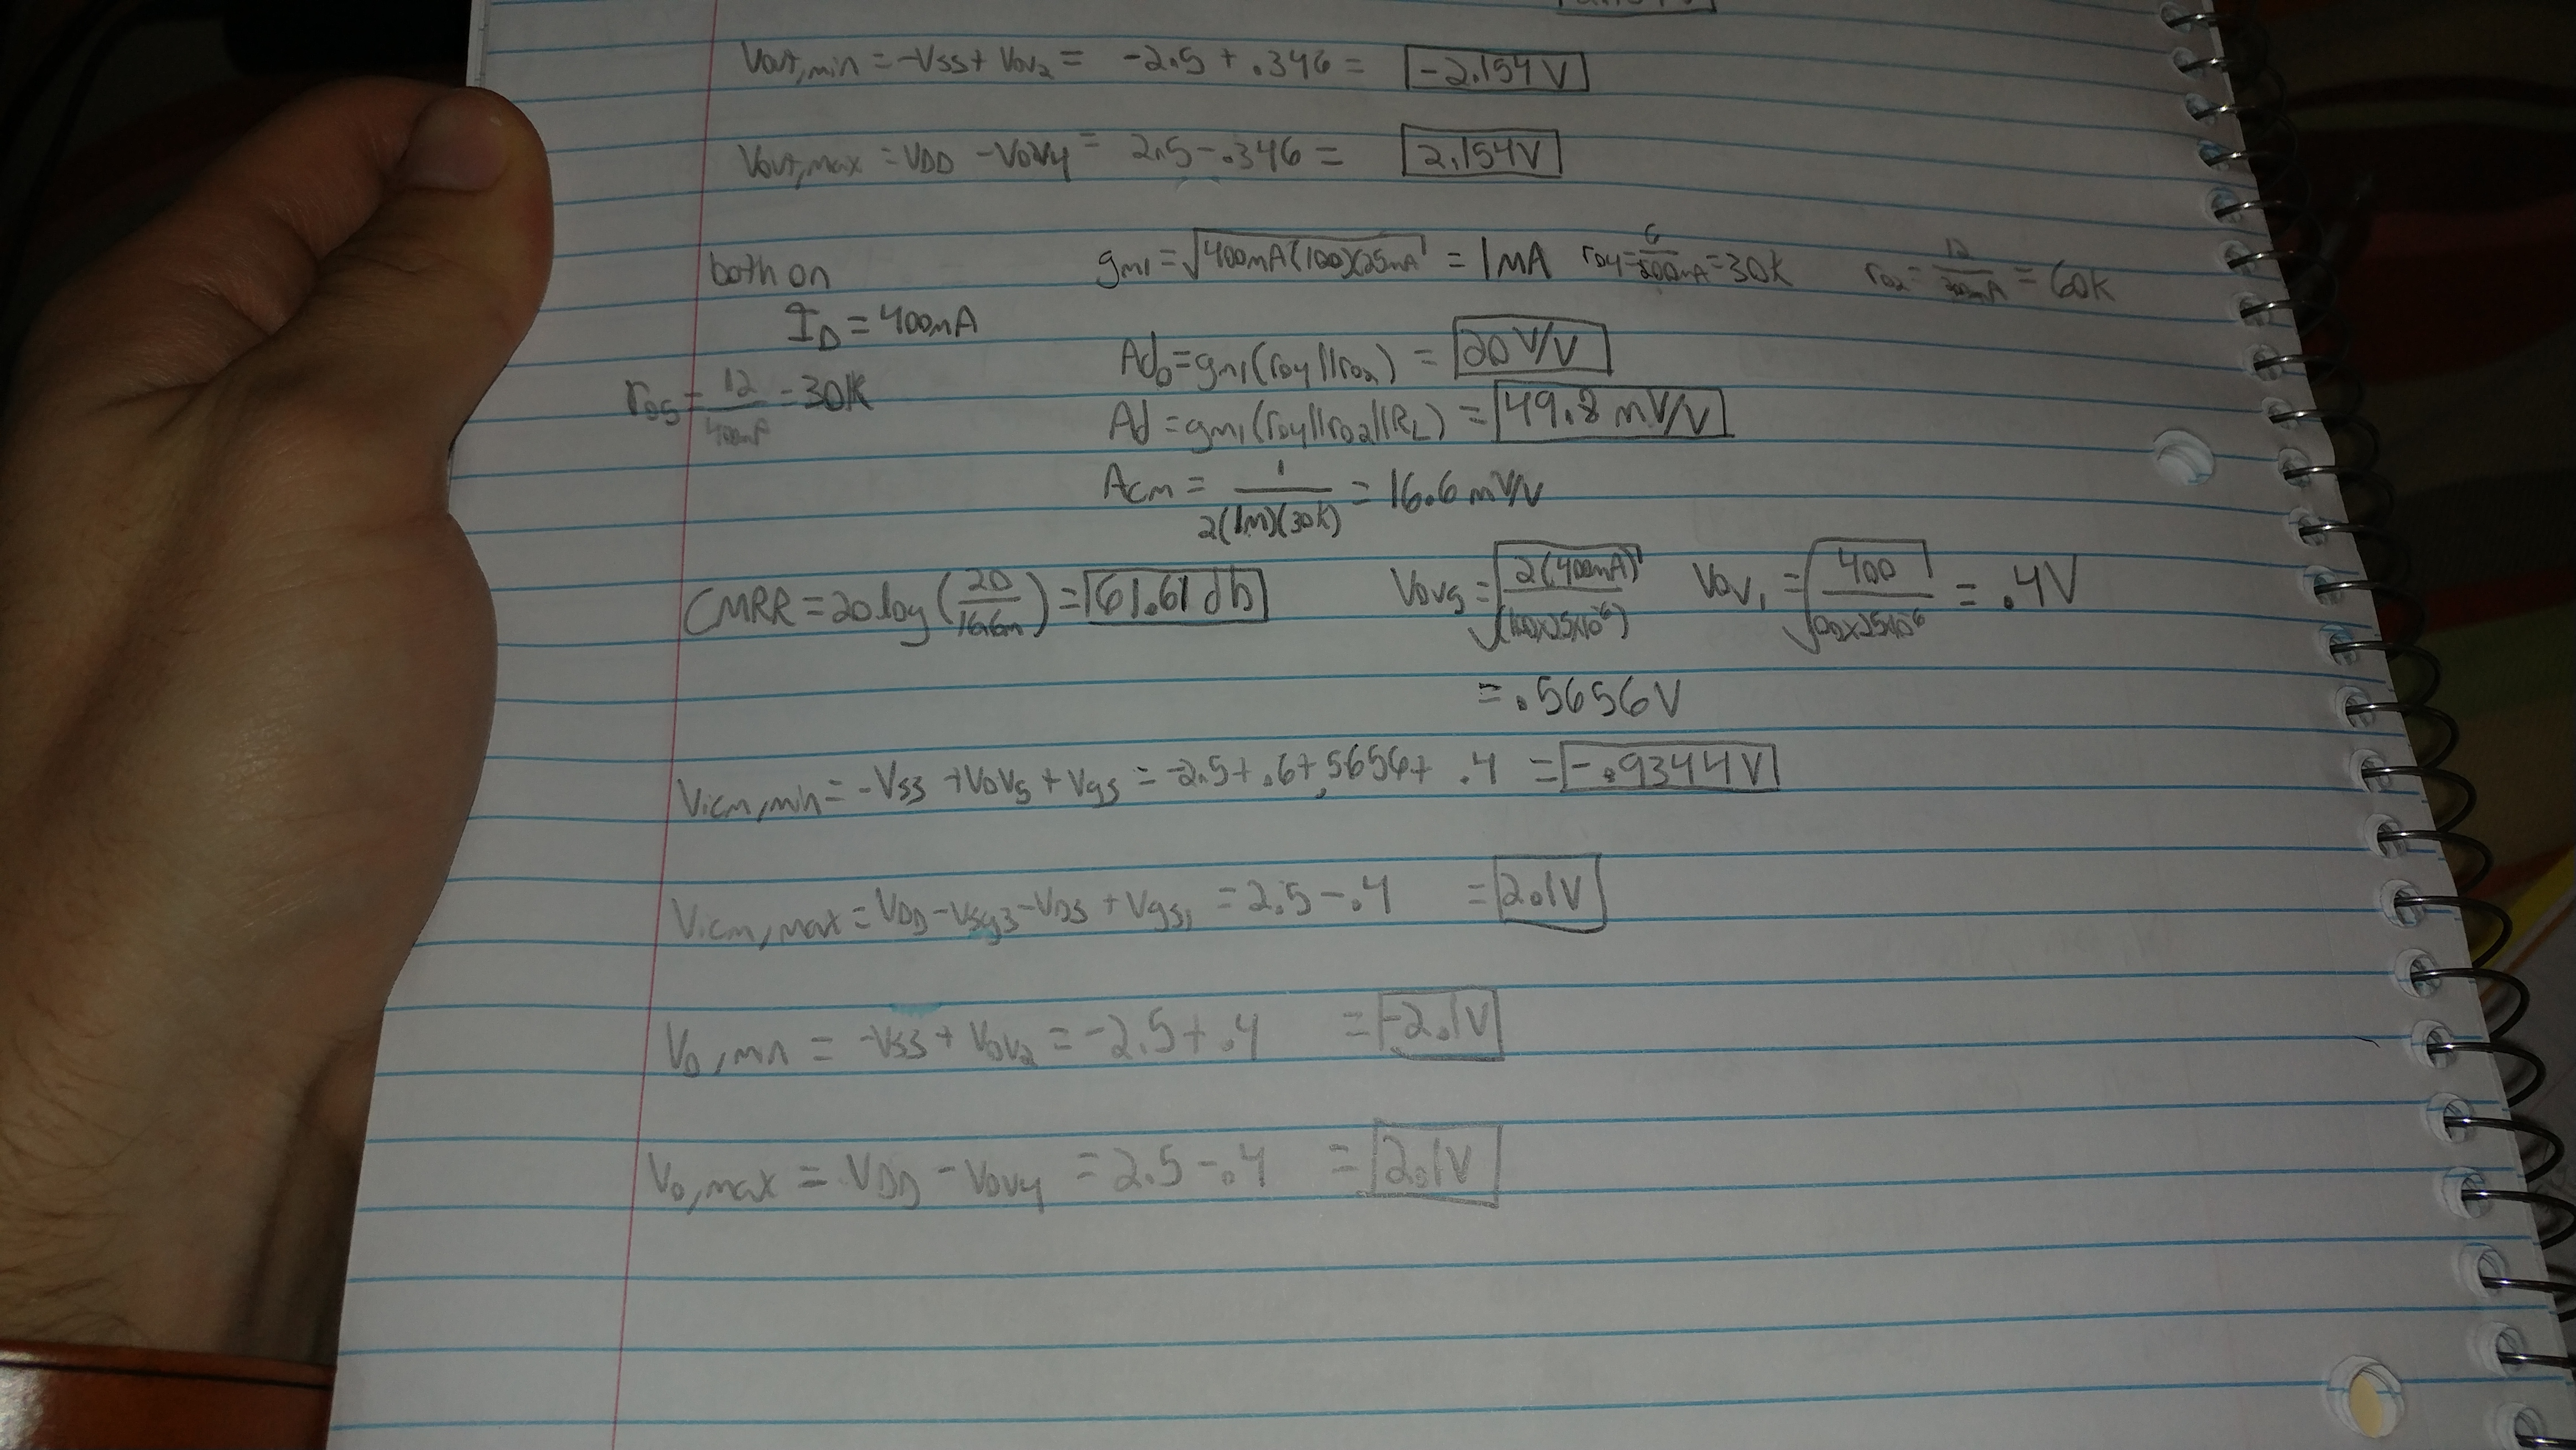 Vout,min = -Vss + Vov2 = -2.5 + .346 = -2.154V
Vout,max = VDD - Vov4 = 2.5 - .346 = 2.154V
both on gm1 = √400mA(100)(25mA) = 1mA ro4 = 6/200mA = 30k ro2 = 12/200mA = 60k
ID = 400mA
Ado = gm1(ro4||ro2) = 20 V/V
ro5 = 12/400mA = 30k
Ad = gm1(ro4||ro2||RL) = 49.8 mV/V
Acm = 1/2(1m)(30k) = 16.6 mV/V
CMRR = 20log(20/16.6m) = 61.61 db Vov5 = √2(400mA)/(100x25x10^-6) Vov1 = √400/100x25x10^6 = .4V
= .5656V
Vicm,min = -Vss + Vov5 + Vgs = -2.5 + .6 + .5656 + .4 = -.9344V
Vicm,max = VDD - Vsg3 - VDS + Vgs1 = 2.5 - .4 = 2.1V
Vo,min = -Vss + Vov2 = -2.5 + .4 = -2.1V
Vo,max = VDD - Vov4 = 2.5 - .4 = 2.1V